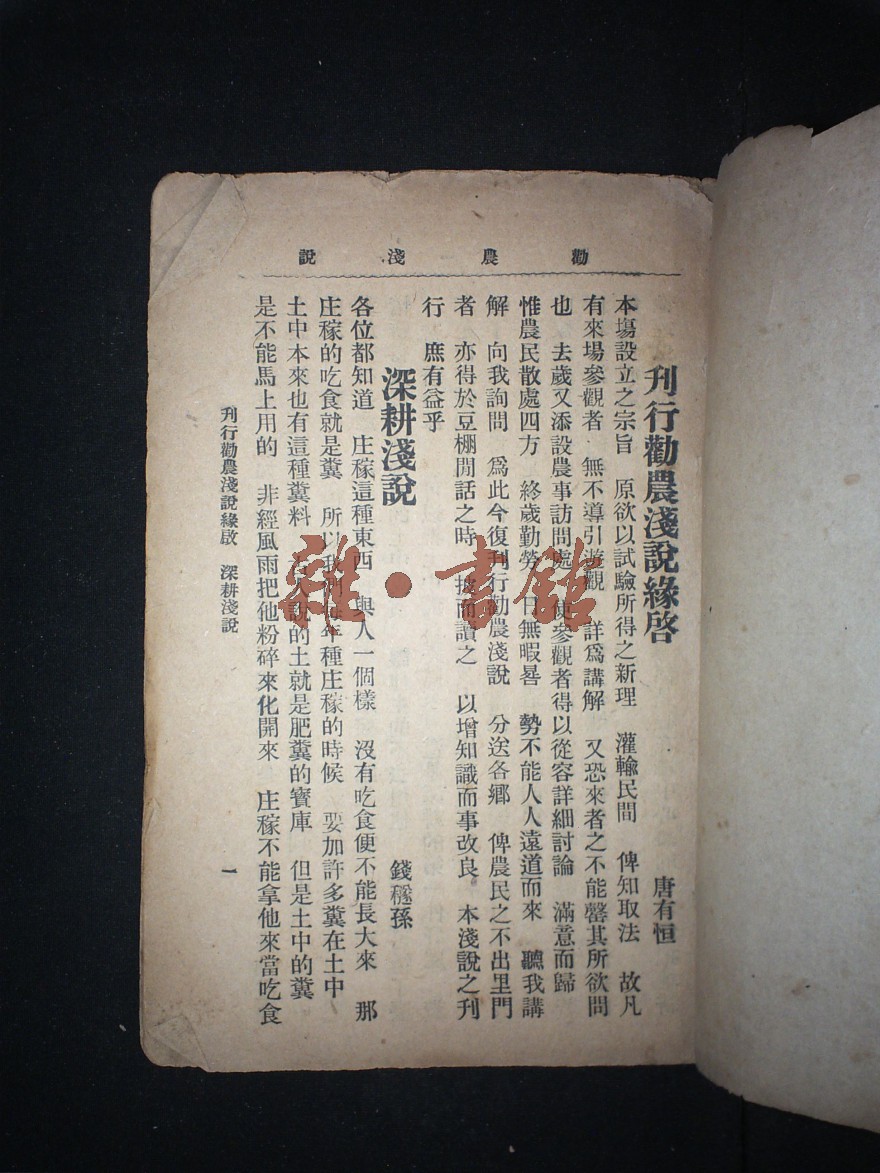 勸農淺說
刊行勸農淺說緣啓
唐有恒
本塲設立之宗旨　原欲以試驗所得之新理　灌輸民間　俾知取法　故凡
有來場參觀者　無不導引遊觀　詳爲講解　又恐來者之不能罄其所欲問
也　去歲又添設農事訪問處　使參觀者得以從容詳細討論　滿意而歸
惟農民散處四方　終歲勤勞　日無暇晷　勢不能人人遠道而來　聽我講
解　向我詢問　爲此今復刊行勸農淺說　分送各鄉　俾農民之不出里門
者　亦得於豆棚閒話之時　披而讀之　以增知識而事改良　本淺說之刊
行　庶有益乎
深耕淺說
錢穟孫
各位都知道　庄稼這種東西　與人一個樣　沒有吃食便不能長大來　那
庄稼的吃食就是糞　所以我們每年種庄稼的時候　要加許多糞在土中
土中本來也有這種糞料　古人說的土就是肥糞的寶庫　但是土中的糞
是不能馬上用的　非經風雨把他粉碎來化開來　庄稼不能拿他來當吃食
刊行勸農淺說緣啟　深耕淺說
一
雜·書館